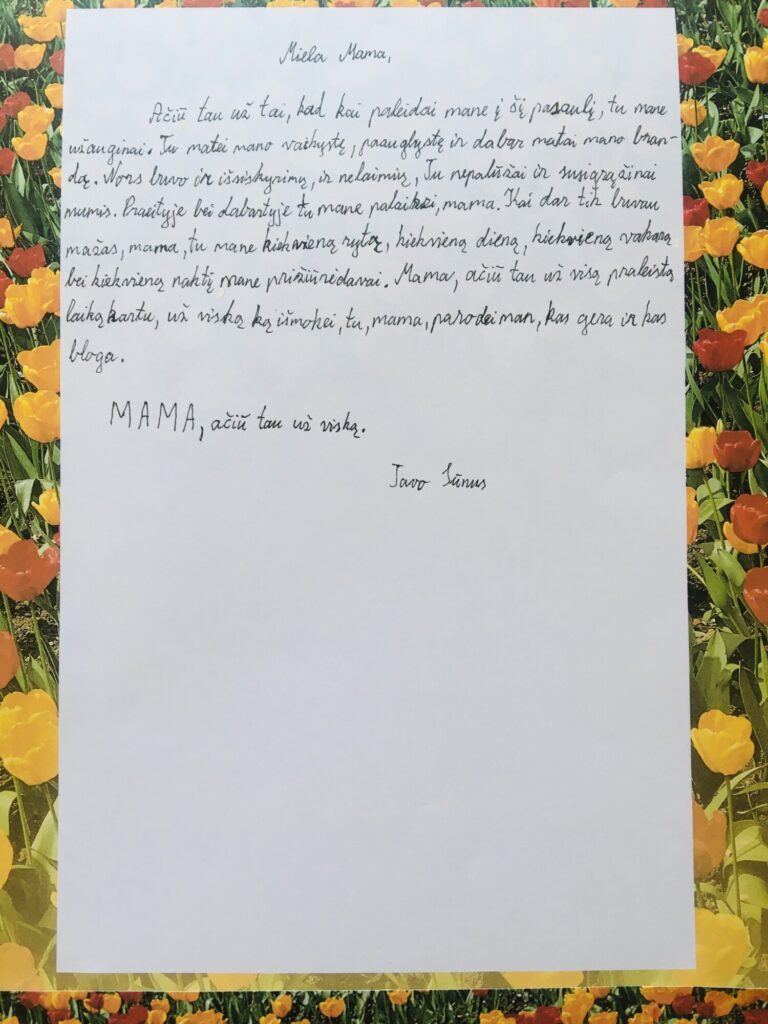 Miela Mama,
Ačiū tau už tai, kad kai paleidai mane į šį pasaulį, tu mane
užauginai. Tu matei mano vaikystę, paauglystę ir dabar matai mano bran-
dą. Nors buvo ir išsiskyrimų, ir nelaimių, Tu nepalūžai ir susigrąžinai
mumis. Praeityje bei dabartyje tu mane palaikei, mama. Kai dar tik buvau
mažas, mama, tu mane kiekvieną rytą, kiekvieną dieną, kiekvieną vakarą
bei kiekvieną naktį mane prižiūrėdavai. Mama, ačiū tau už visą praleistą
laiką kartu, už viską ką išmokei, tu, mama, parodei man, kas gera ir kas
bloga.
MAMA, ačiū tau už viską.
Tavo Sūnus